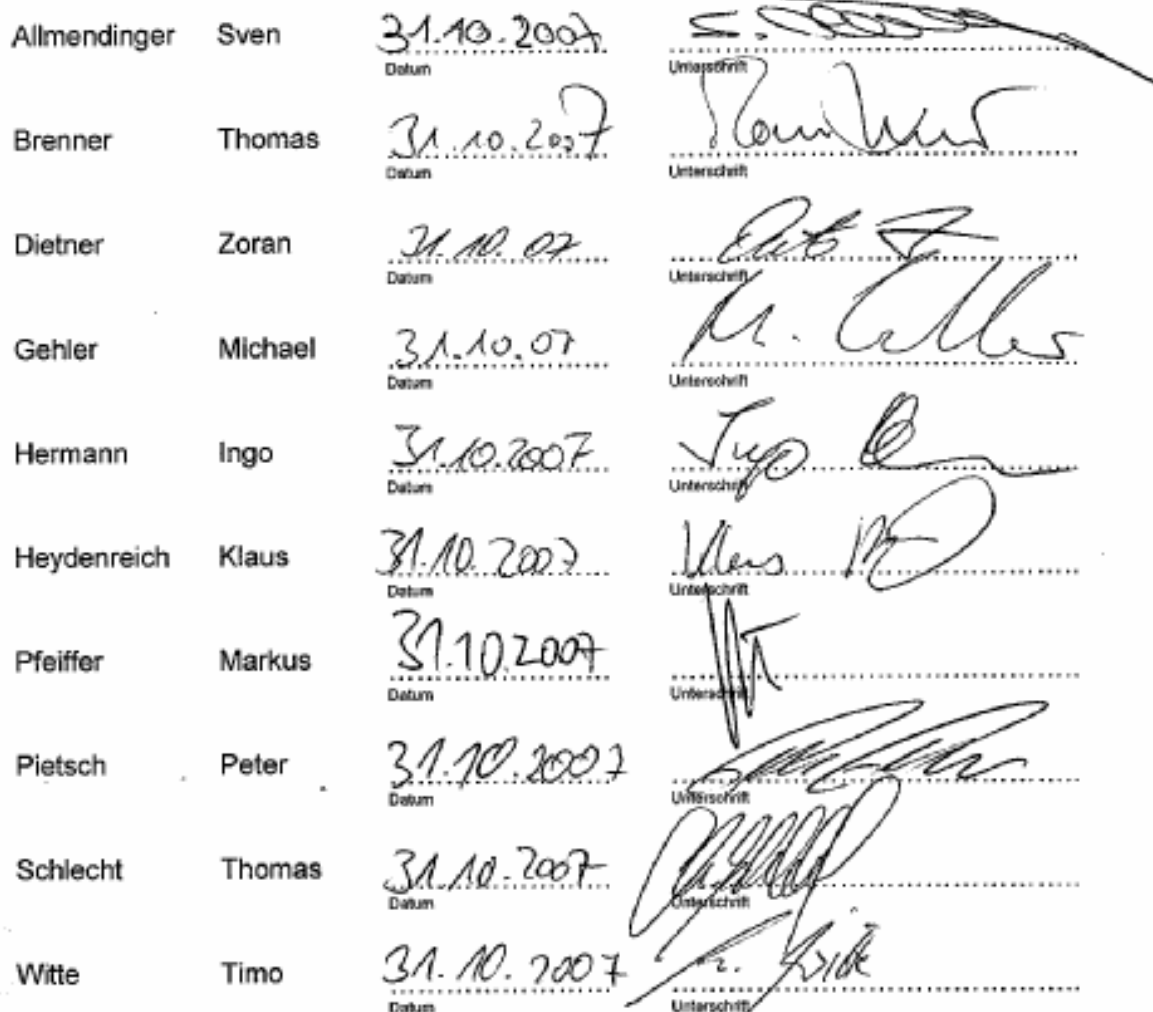 Allmendinger Sven 31.10.2007
Datum Unterschrift
Brenner Thomas 31.10.2007
Datum Unterschrift
Dietner Zoran 31.10.07
Datum Unterschrift
Gehler Michael 31.10.07 M.
Datum Unterschrift
Hermann Ingo 31.10.2007 Ingo
Datum Unterschrift
Heydenreich Klaus 31.10.2007 Klaus
Datum Unterschrift
Pfeiffer Markus 31.10.2007
Datum Unterschrift
Pietsch Peter 31.10.2007
Datum Unterschrift
Schlecht Thomas 31.10.2007
Datum Unterschrift
Witte Timo 31.10.2007 Witte
Datum Unterschrift